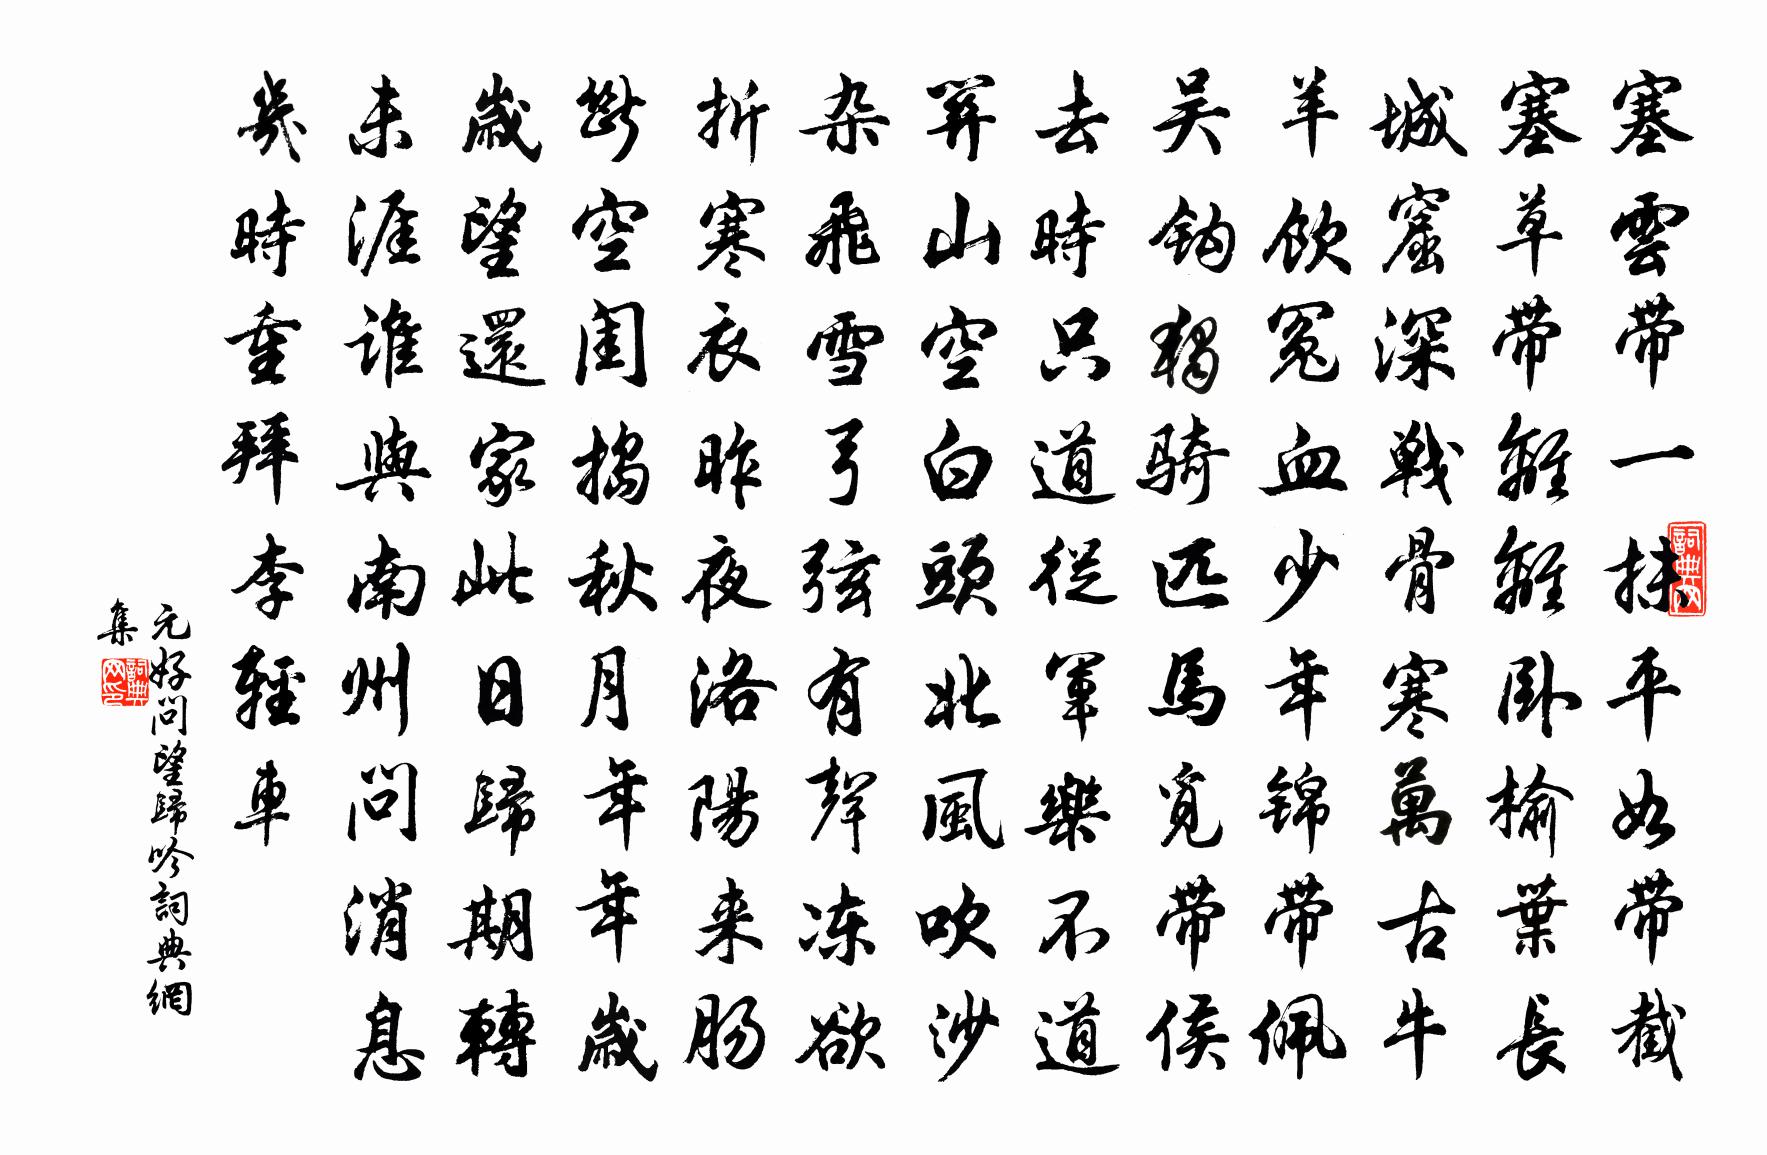 塞雲带一抹平如带截
塞草带離離卧榆葉長
城窟深戰骨寒萬古牛
羊飲冤血少年錦带佩
吴鈎獨騎匹馬覓带侯
去時只道從軍樂不道
關山空白頭北風吹沙
杂飛雪弓弦有聲冻欲
折寒衣昨夜洛陽来腸
斷空閨搗秋月年年歲
歲望還家此日歸期轉
未涯誰與南州問消息
幾時重拜李輕車
元好問望歸吟詞典網
集
詞典网
詞典网印